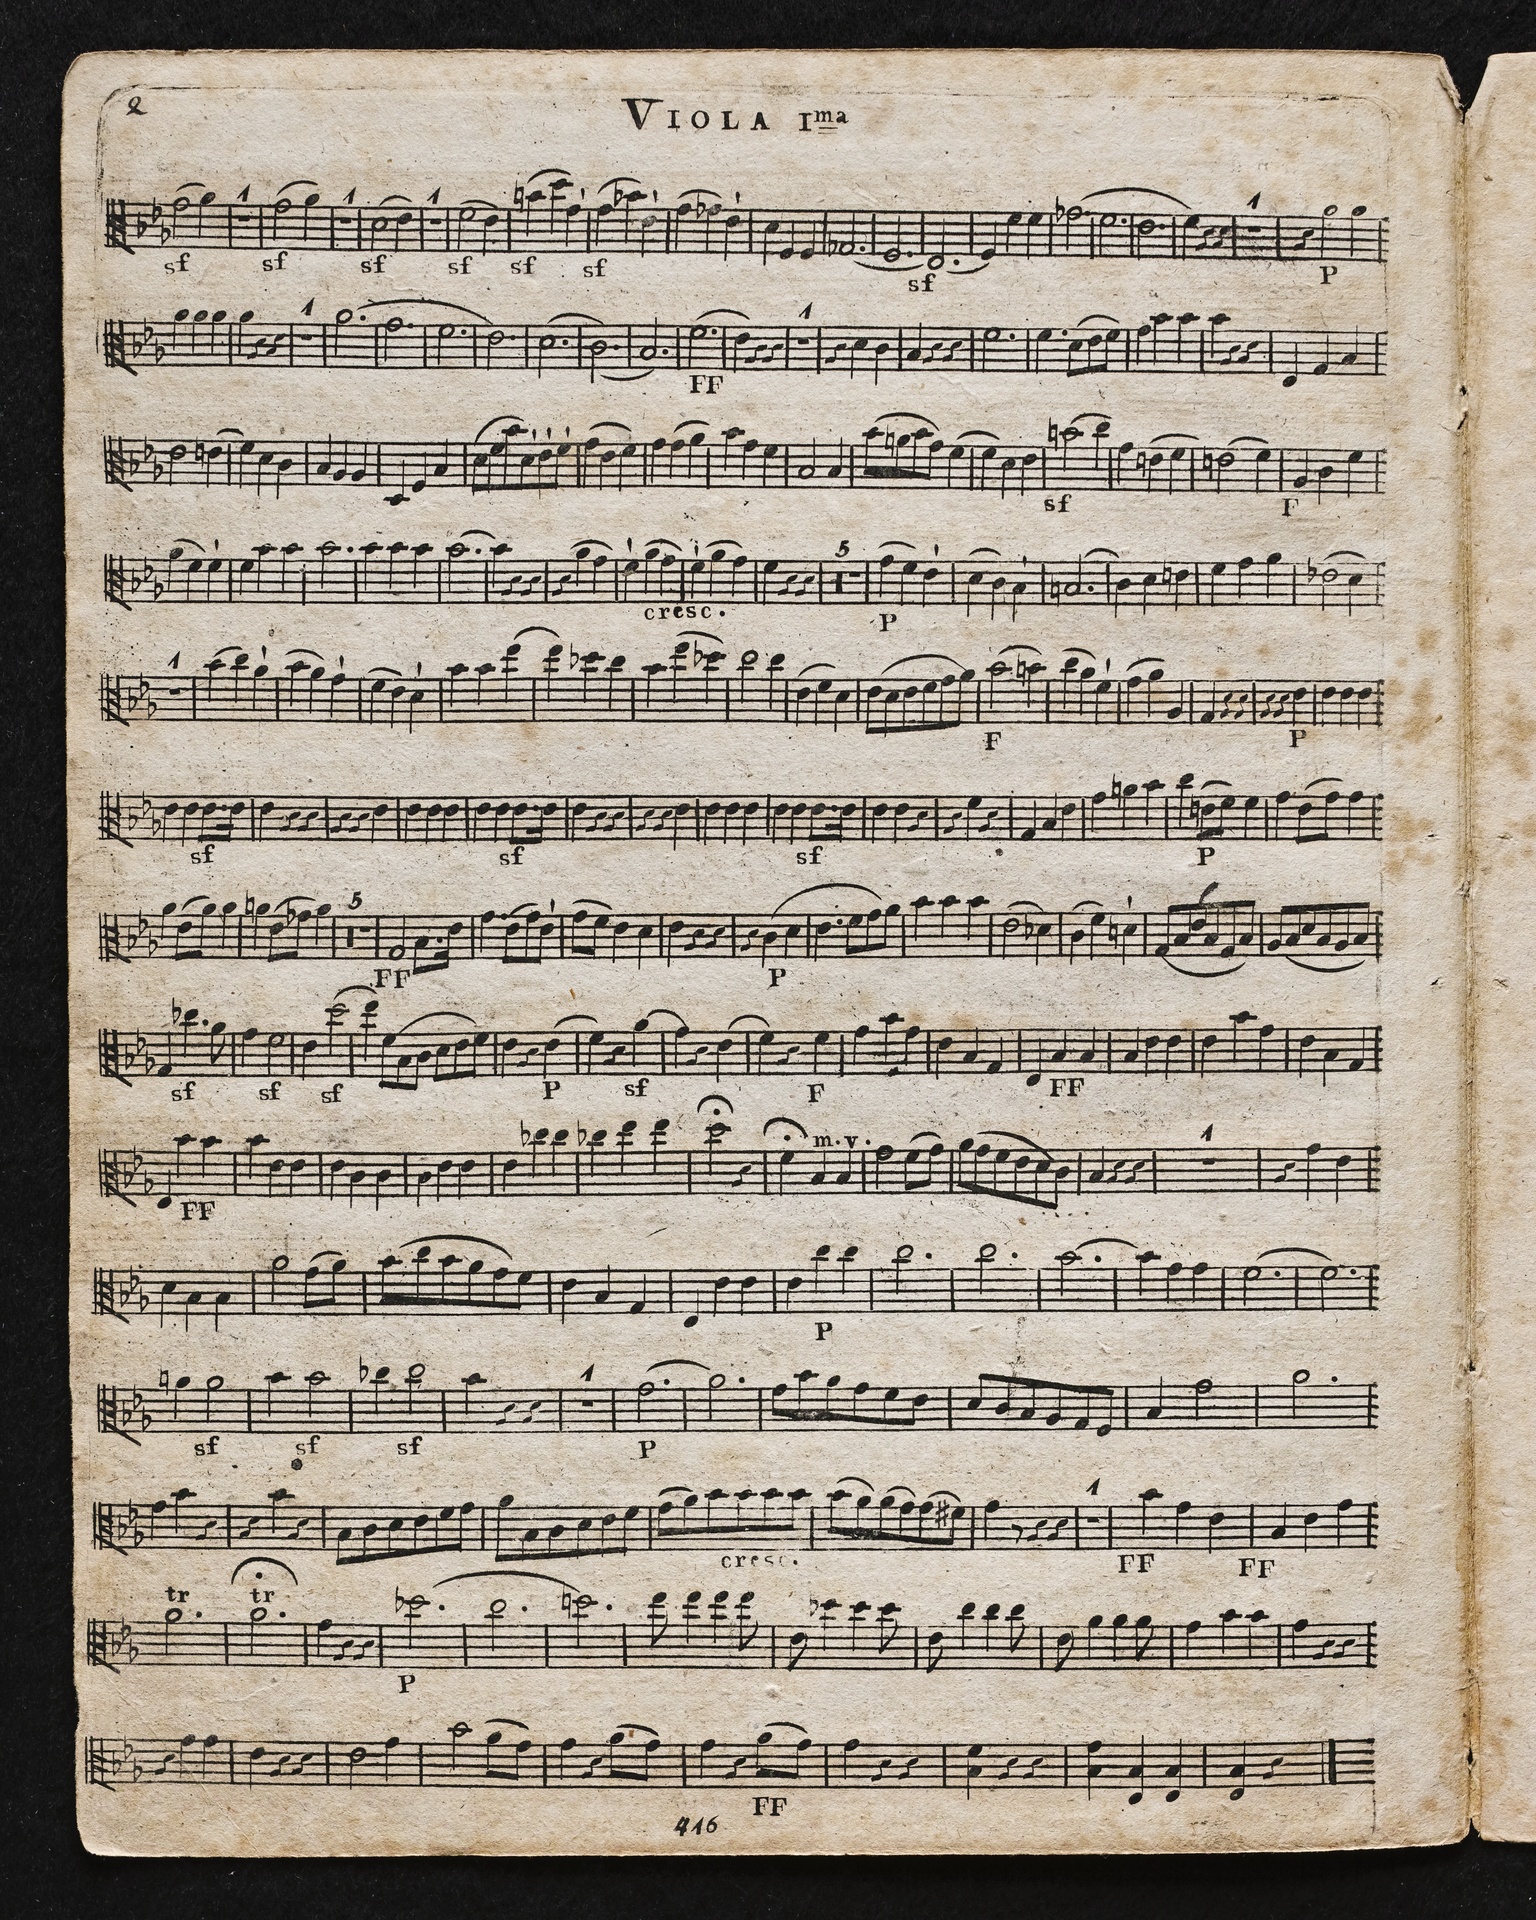 2
VIOLA Ima
1 1 1 1
sf sf sf sf sf sf sf P
1 1
FF
sf F
5
cresc. P
1
F P
sf sf sf P
5 6
FF P
sf sf sf P sf F FF
m.v. 1
FF
P
1
sf sf sf P
1
cresc. FF FF
tr tr
P
FF
416